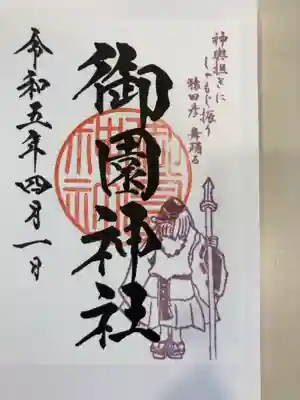 神輿担ぎに
しゃもじ振り
猿田彦 舞踊る
御園神社
令和五年四月一日